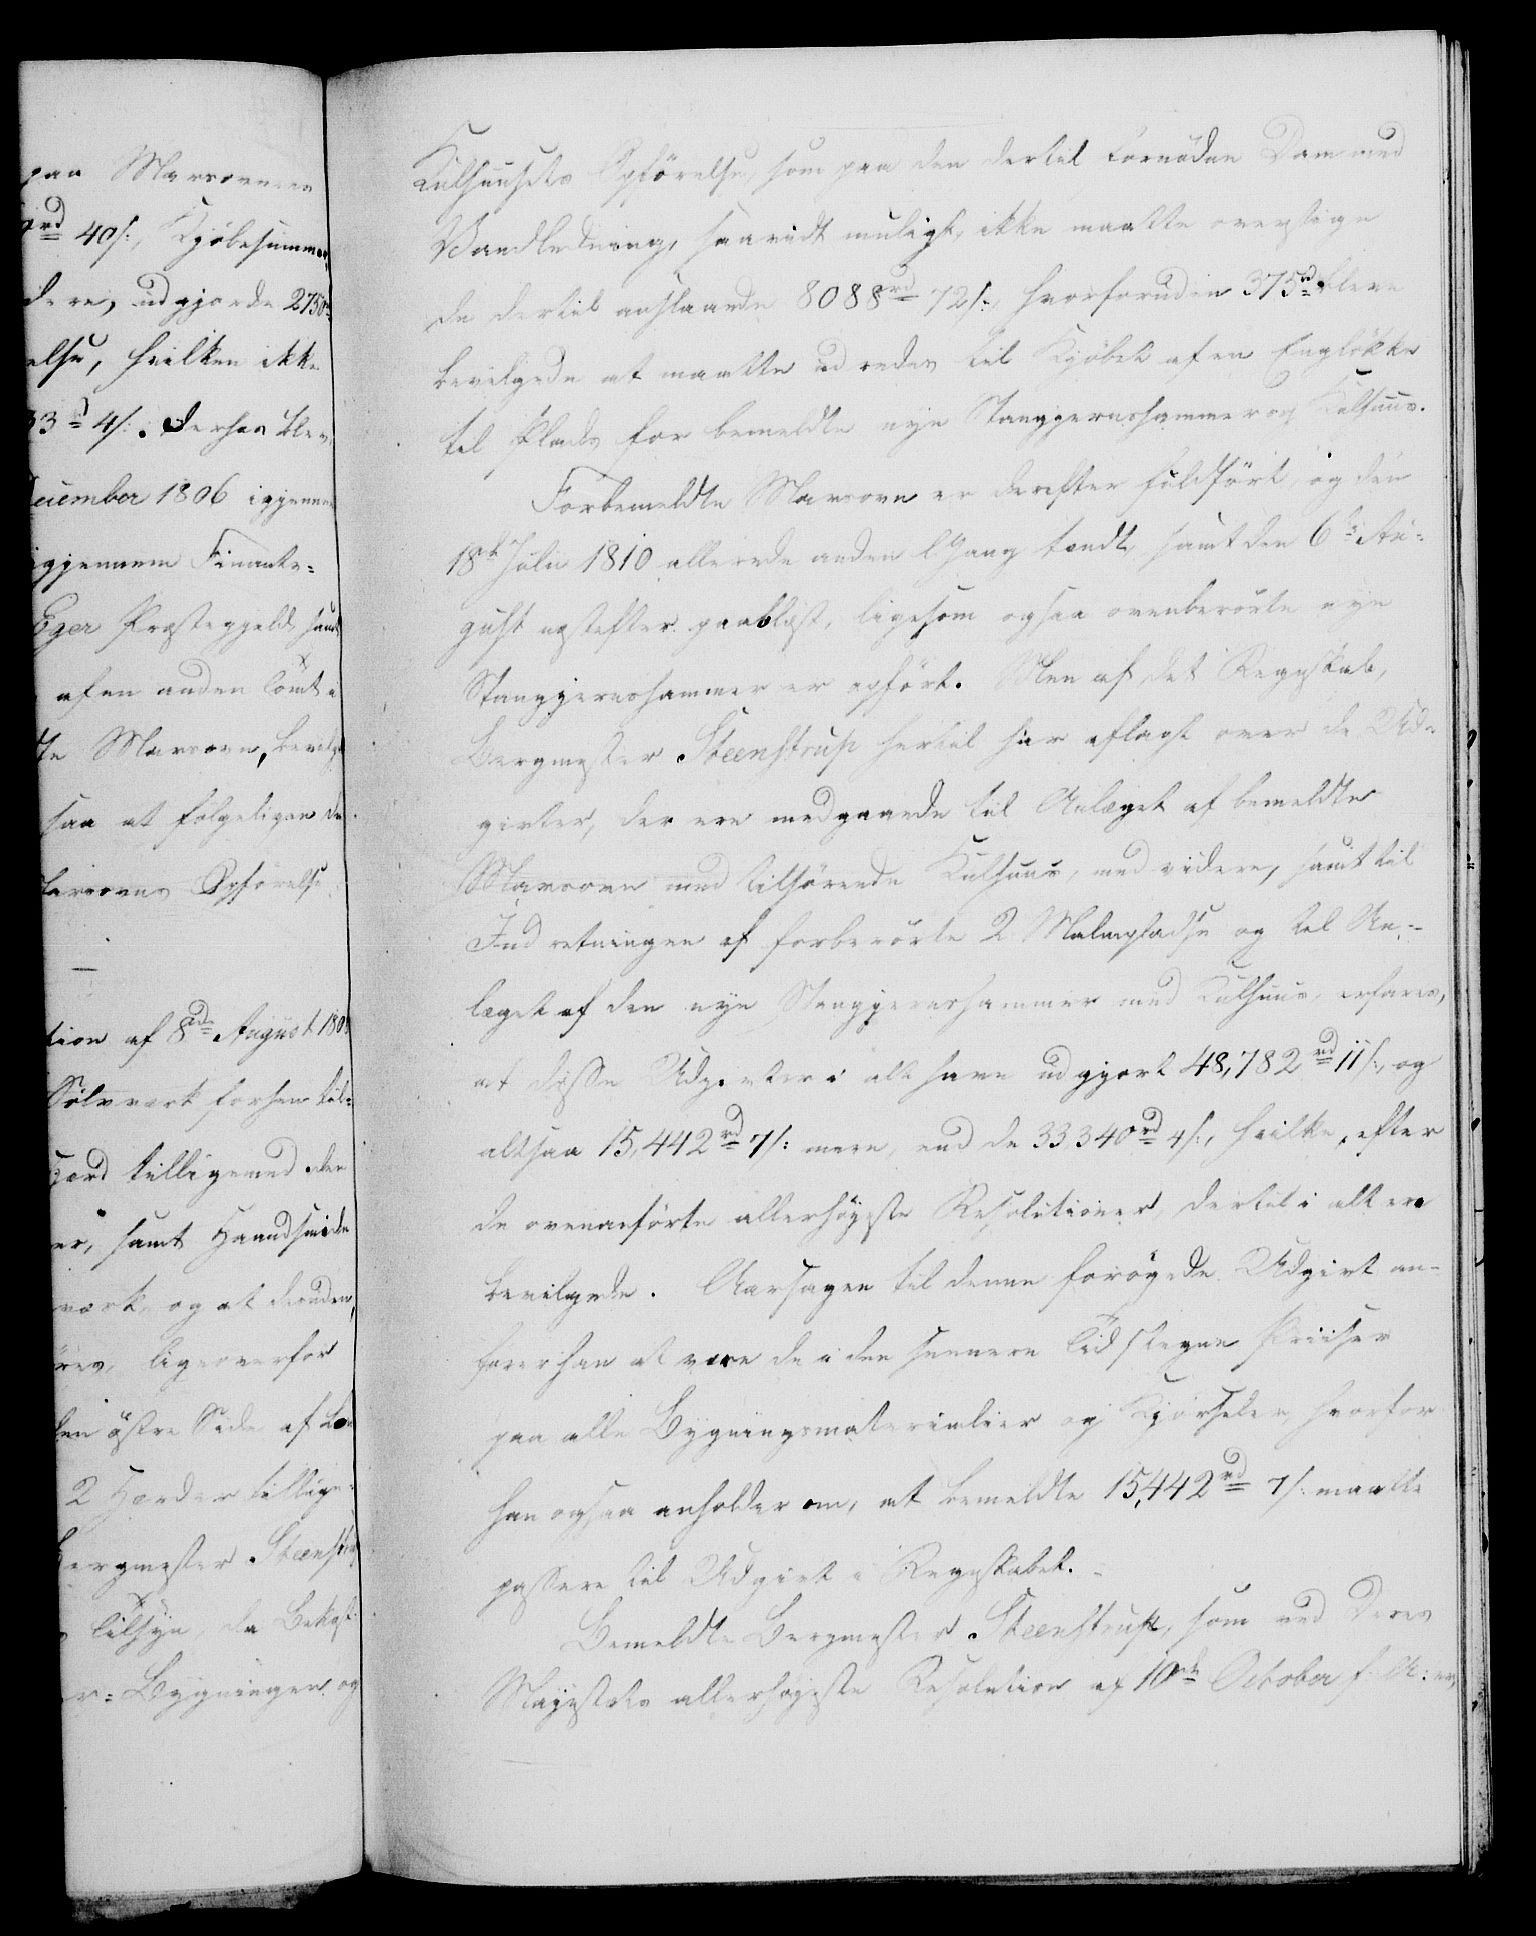 paa Marsovnens
rd 40 s:, Kjöbesummen
dere, udgjorde 2750
else, hvilken ikke
33 d 4 s:. Derhen blev
December 1806 igjennem
igjennem Finants-
Eger Præstegjeld, samt
af en anden Tomt i
te Marsovn, bevilget
saa at følgeligen de
Marsovns Opførelse
—
tion af 8de August 180
Sölvværk forhen til-
gord tilligemed den
er, samt Haandsmide
værk, og at desuden
res, ligeoverfor
den östre Side af
2 Hærder tillige-
Bergmester Steenstrup
Tilsyn, da Bekost
r-Bygningen og
Kulhuusets Opförelse, som paa den dertil fornödne Dam med
Vandledning, saavidt muligt, ikke maatte overstige
de dertil anslaaede 8088 rd 72 s:, hvorforuden 375 rd bleve
bevilgede at maatte udredes til Kjöbet af en Englökke
til Plads for bemeldte nye Stangjernshammer og Kulhuus.
Forbemeldte Marsovn er derefter fuldfört, og den
18de Julii 1810 allerede anden Gang tændt, samt den 6te Au-
gust næstefter paablæst, ligesom ogsaa ovenberörte nye
Stangjernshammer er opfört. Men af det Regnskab,
Bergmester Steenstrup hertil har aflagt over de Ud-
givter, der ere medgaaede til Anlæget af bemeldte
Marsovn med tilhörende Kulhuus, med videre, samt til
Indretningen af forberörte 2 Malmpladse og til An-
læget af den nye Stangjernshammer med Kulhuus, erfares,
at disse Udgivter i alt have udgjort 48,782 rd 11 s:, og
altsaa 15,442 rd 7 s: mere, end de 33,340 rd 4 s:, hvilke, efter
de ovenanförte allerhöyeste Resolutioner, dertil i alt ere
bevilgede. Aarsagen til denne forögede Udgivt an-
forer han at være de i den senere Tid stegne Priiser
paa alle Bygningsmaterialier og Kjörseler, hvorfor
han ogsaa anholder om, at bemeldte 15,442 rd 7 s: maatte
passere til Udgivt i Regnskabet.
Bemeldte Bergmester Steenstrup, som ved Deres
Majestæts allerhöyeste Resolution af 10de October f: A: er,